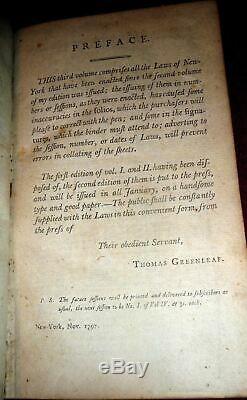 PREFACE.
THIS third volume comprises all the Laws of New-
York that have been enacted since the second volume
of my edition was issued; the issuing of them in num-
bers or sessions, as they were enacted, has caused some
inaccuracies in the folios, which the purchasers will
please to correct with the pen; and some in the signa-
tures, which the binder must attend to; adverting to
the session, number, or dates of Laws, will prevent
errors in collating of the sheets.
The first edition of vol. I. and II. having been dis-
posed of, the second edition of them is put to the press,
and will be issued in all January, on a handsome
type and good paper.—The public shall be constantly
supplied with the Laws in this convenient form, from
the press of
Their obedient Servant,
THOMAS GREENLEAF.
P. S. The future sessions will be printed and delivered to subscribers as
usual, the next session to be No. I. of Vol IV. at 3s. each.
New-York, Nov. 1797.